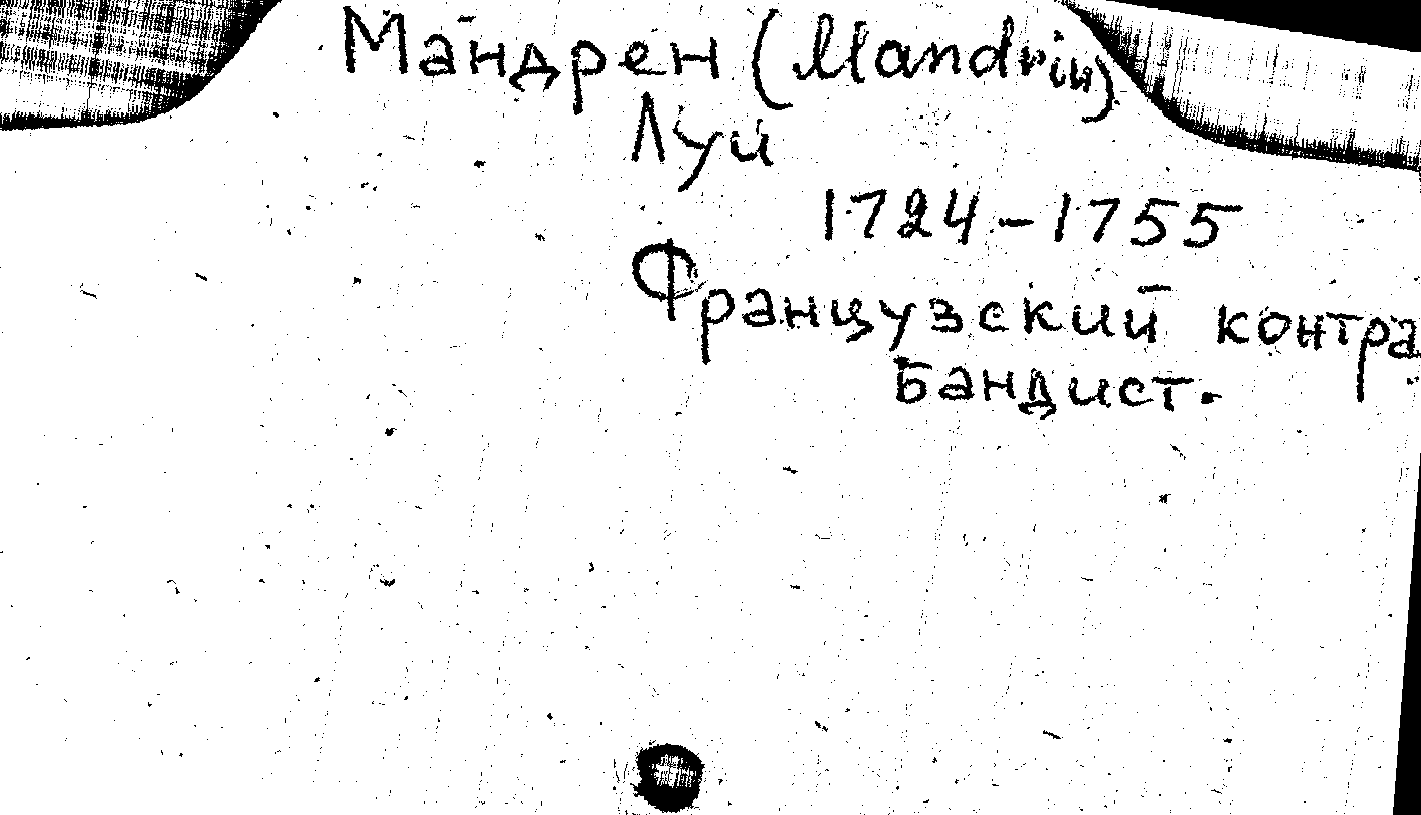 Мандрен (Mandrin)
Луи
1724-1755
Французский контра
бандист.